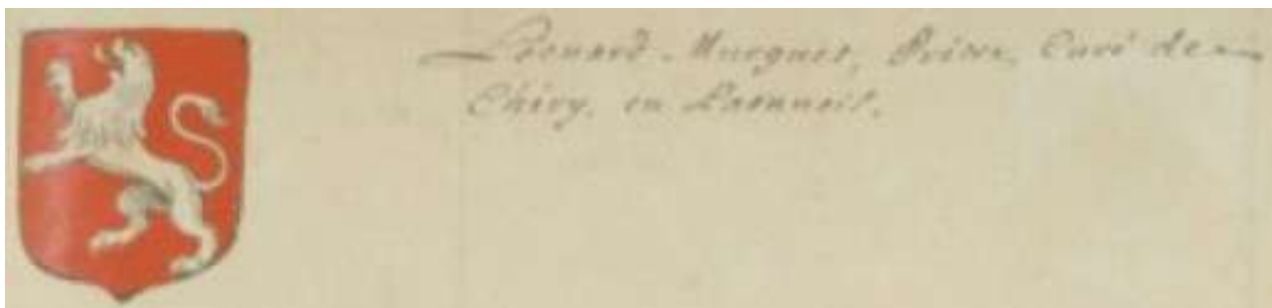 Léonard Murguet, Prieur, Curé de
Chéry, en Laonnois.